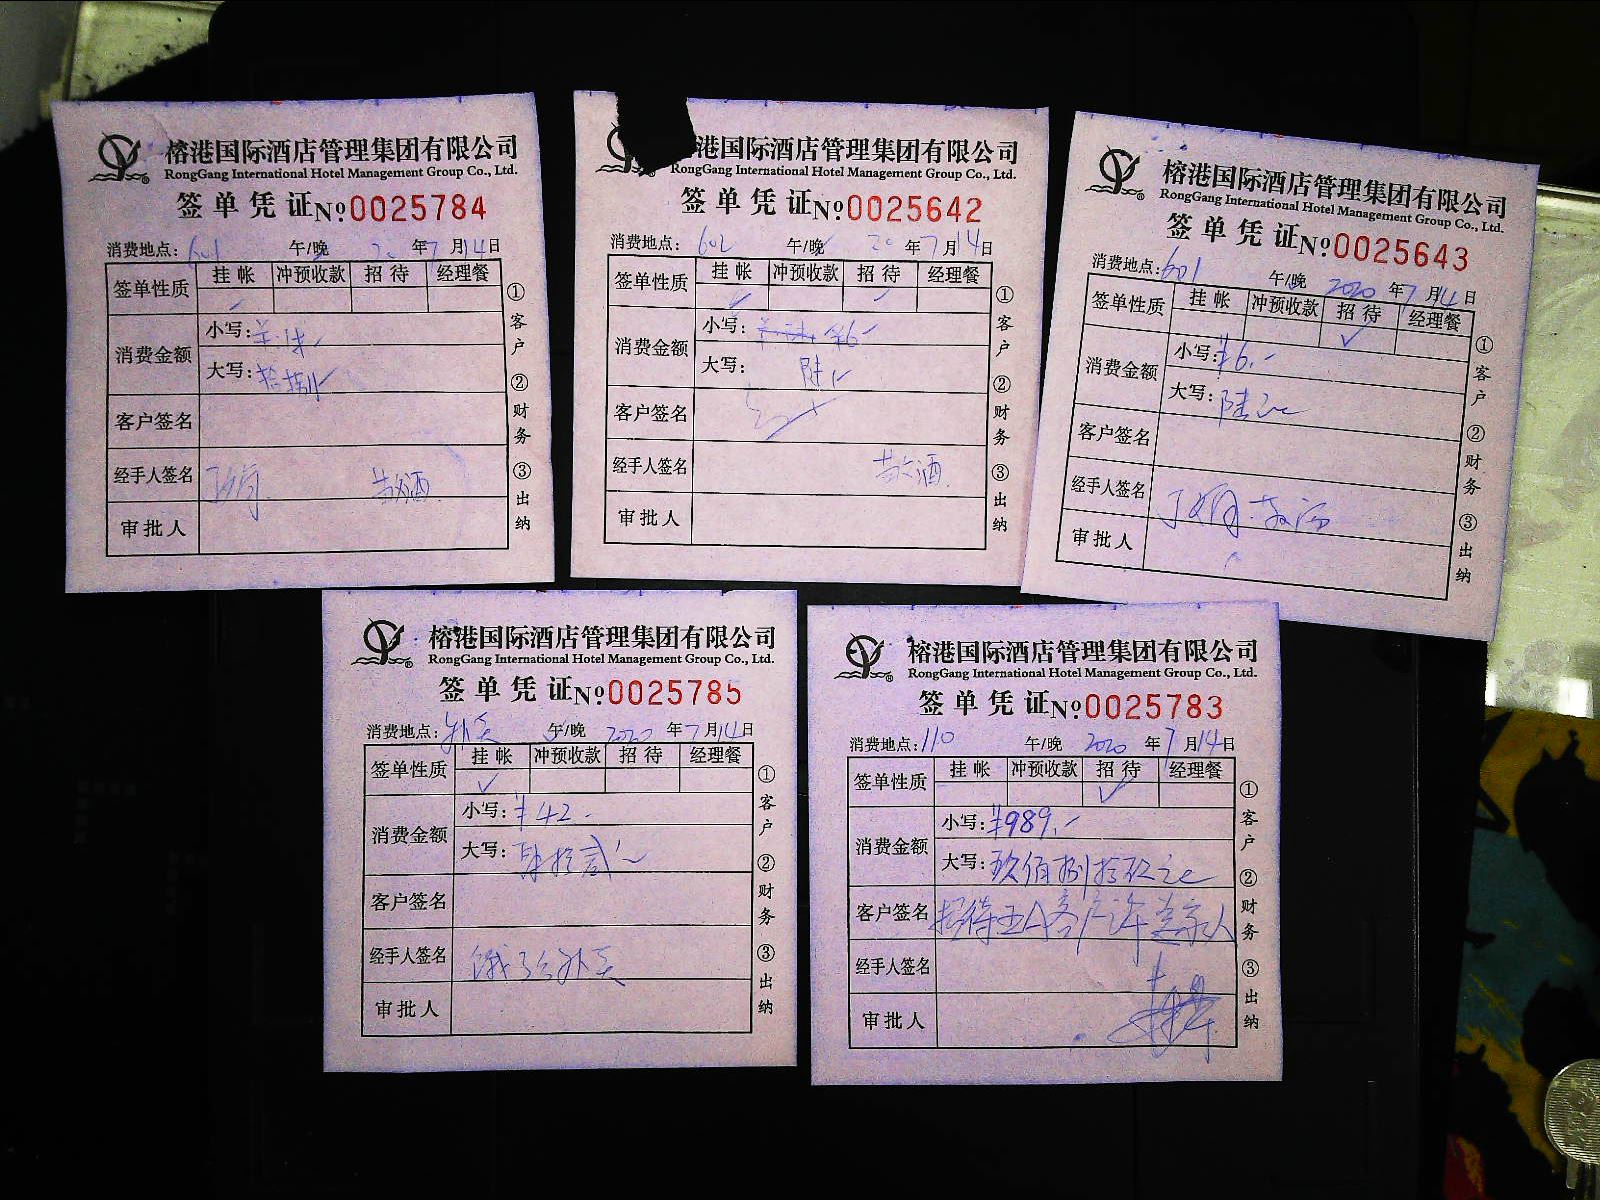 榕港国际酒店管理集团有限公司
RongGang International Hotel Management Group Co., Ltd.
签单凭证№0025784
消费地点：601 午/晚 20年7月14日
签单性质 挂帐 冲预收款 招待 经理餐
✓
消费金额 小写：
大写：拾捌
客户签名
经手人签名 敬酒
审批人
①客户 ②财务 ③出纳
港国际酒店管理集团有限公司
RongGang International Hotel Management Group Co., Ltd.
签单凭证№0025642
消费地点：602 午/晚 20年7月14日
签单性质 挂帐 冲预收款 招待 经理餐
✓ ✓
消费金额 小写：¥6-
大写：陆
客户签名
经手人签名 敬酒
审批人
①客户 ②财务 ③出纳
榕港国际酒店管理集团有限公司
RongGang International Hotel Management Group Co., Ltd.
签单凭证№0025643
消费地点：601 午/晚 2020年7月14日
签单性质 挂帐 冲预收款 招待 经理餐
✓
消费金额 小写：¥6.-
大写：陆元
客户签名
经手人签名 敬酒
审批人
①客户 ②财务 ③出纳
榕港国际酒店管理集团有限公司
RongGang International Hotel Management Group Co., Ltd.
签单凭证№0025785
消费地点：外卖 午/晚 2020年7月14日
签单性质 挂帐 冲预收款 招待 经理餐
✓
消费金额 小写：¥42.-
大写：肆拾贰
客户签名
经手人签名 饿了么外卖
审批人
①客户 ②财务 ③出纳
榕港国际酒店管理集团有限公司
RongGang International Hotel Management Group Co., Ltd.
签单凭证№0025783
消费地点：110 午/晚 2020年7月14日
签单性质 挂帐 冲预收款 招待 经理餐
✓
消费金额 小写：¥989.-
大写：玖佰捌拾玖元
客户签名 招待 客户许 家人
经手人签名
审批人
①客户 ②财务 ③出纳